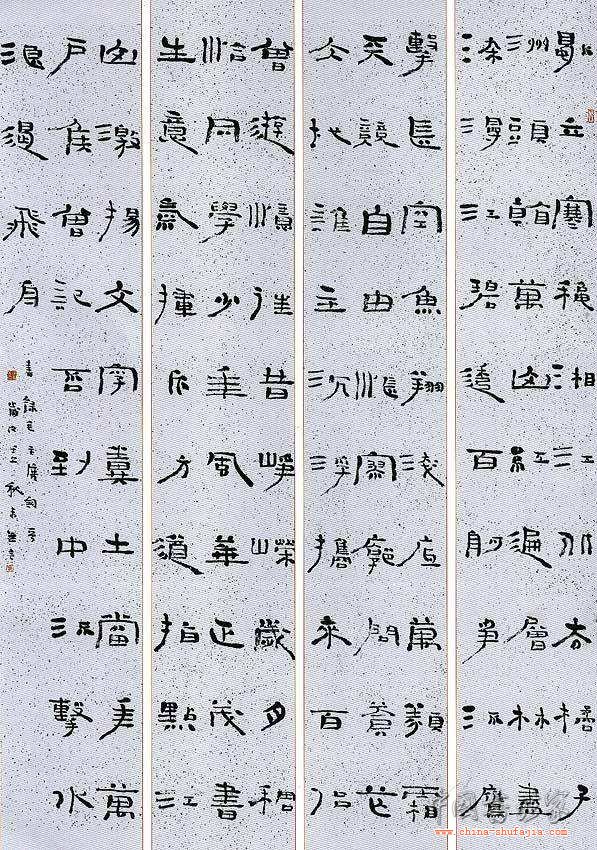 獨立寒穐湘江北去橘子
洲頭看萬山紅遍層林盡
染漫江碧透百舸爭流鷹
擊長空魚翔淺底萬類霜
天競自由悵寥廓問蒼茫
大地誰主沉浮攜來百侶
曾遊憶往昔崢嶸歲月稠
恰同學少年風華正茂書
生意氣揮斥方遒指點江
山激揚文字糞土當年萬
戶侯曾記否到中流擊水
浪遏飛舟
www.china-shufajia.com